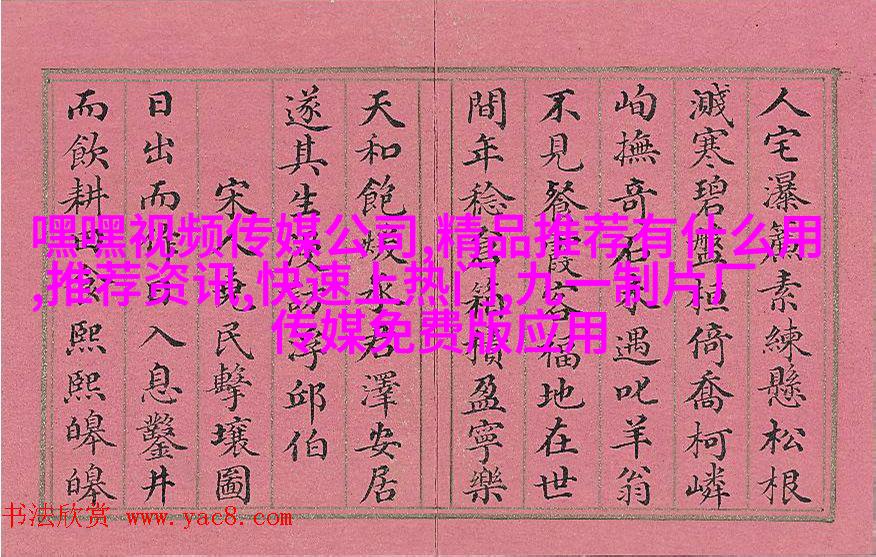 人宅瀑簾素練懸松根
濺寒碧盤桓倚喬柯嶙
峋撫奇石遇叱羊翁
不見餐霞客福地在世
間年稔倉箱積盈寧樂
天和飽煖承君澤安居
遂其生漫訪浮邱伯
宋人堯民擊壤圖
日出而作日入息鑿井
而飲耕田食熙熙皞皞
嘿嘿视频传媒公司,精品推荐有什么用
,推荐资讯,快速上热门,九一制片厂
传媒免费版应用
书法欣赏 www.yac8.com